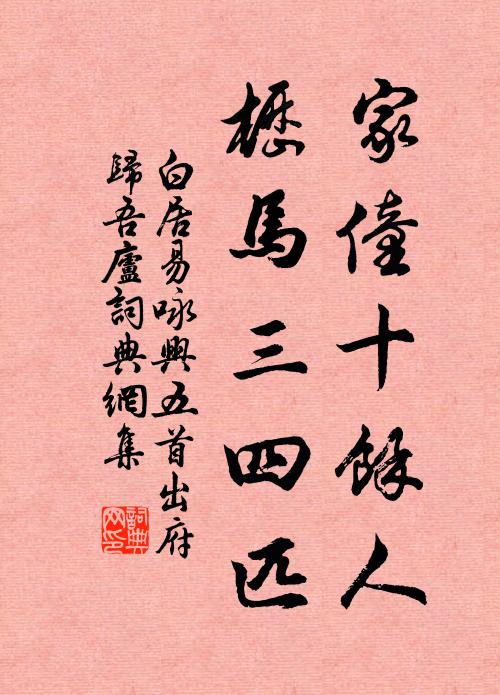 家僮十餘人
櫪馬三四匹
白居易咏興五首出府
歸吾廬詞典網集
詞典網印